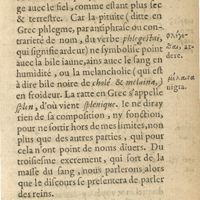 ge auec le fiel, comme estant plus sec
& terrestre. Car la pituite (ditte en
Grec phlegme, par antiphrase ou con-
trarieté de nom, du verbe phlegesthai,
qui signifie ardeur) ne symbolise point
auec la bile iaune, ains auec le sang en
humidité, ou la melancholie (qui est
à dire bile noire de cholé & melaina,)
en froideur. La ratte en Grec s'appelle
splen, d'où vient splenique. Ie ne diray
rien de sa composition, ny fonction,
pour ne sortir hors de mes limites, non
plus que des autres parties, qui pour
ce n'ont point de noms diuers. Du
troisiesme excrement, qui sort de la
masse du sang, nous parlerons alors
que le discours se presentera de parler
des reins.
dere.
nigra.